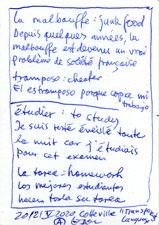 La malbouffe: junk food
Depuis quelques années, la
malbouffe est devenu un vrai
problème de société française
tramposo: cheater
El es tramposo porque copia mi
trabajo
étudier: to study
Je suis resté éveillé toute
la nuit car j'étudiais
pour cet examen
La tarea = homework
Los mejores estudiantes
hacen toda su tarea
2020 Colleville